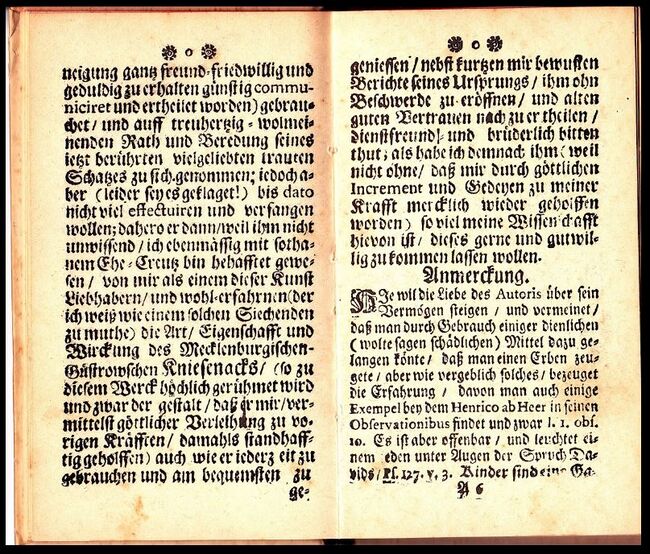 neigung gantz freund-friedwillig und
geduldig zu erhalten günstig commu-
niciret und ertheilet worden) gebrau-
chet / und auff treuhertzig-wolmei-
nenden Rath und Beredung seines
jetzt berührten vielgeliebten trauten
Schatzes zu sich genommen; jedoch a-
ber (leider sey es geklaget!) bis dato
nicht viel effectuiren und verfangen
wollen; dahero er dann / weil ihm nicht
unwissend / ich ebenmässig mit sotha-
nem Ehe-Creutz bin behafftet gewe-
sen / von mir als einem dieser Kunst
Liebhabern / und wohl-erfahrnen (der
ich weiß wie einem solchen Siechenden
zu muthe) die Art / Eigenschafft und
Wirckung des Mecklenburgischen-
Güstrowschen Kniesenacks / (so zu
diesem Werck höchlich gerühmet wird
und zwar der gestalt / daß er mir / ver-
mittelst göttlicher Verleihung zu vo-
rigen Kräfften / damahls standhaff-
tig geholffen) auch wie er jederzeit zu
gebrauchen und am bequemsten zu
ge-
geniessen / nebst kurtzen mir bewusten
Berichte seines Ursprungs / ihm ohn
Beschwerde zu eröffnen / und alten
guten Vertrauen nach zu ertheilen /
dienstfreund- und brüderlich bitten
thut; als habe ich demnach ihm (weil
nicht ohne / daß mir durch göttlichen
Increment und Gedeyen zu meiner
Krafft mercklich wieder geholffen
worden) so viel meine Wissenschafft
hievon ist / dieses gerne und gutwil-
lig zukommen lassen wollen.
Anmerckung.
HIe wil die Liebe des Autoris über sein
Vermögen steigen / und vermeinet /
daß man durch Gebrauch einiger dienlichen
(wolte sagen schädlichen) Mittel dazu ge-
langen könte / daß man einen Erben zeu-
gete / aber wie vergeblich solches / bezeuget
die Erfahrung / davon man auch einige
Exempel bey dem Henrico ab Heer in seinen
Observationibus findet und zwar l. 1. obs.
10. Es ist aber offenbar / und leuchtet ei-
nem jeden unter Augen der Spruch Da-
vids / Ps. 127. v. 3. Kinder sind eine Ga-
A 6